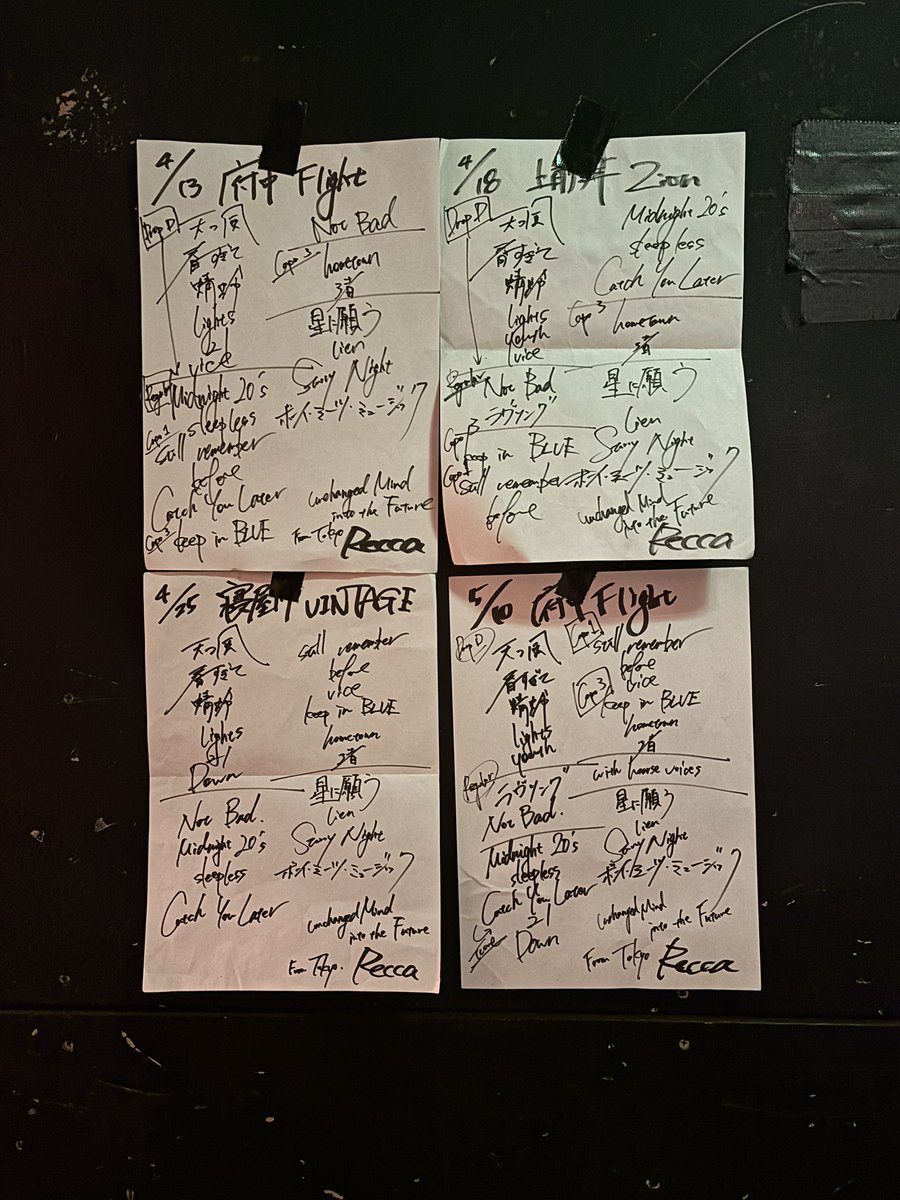 4/13 府中 Flight
Drop D
天つ風
春すぎて
蜻蛉
Lights
21
vice
Regular
Midnight 20's
sleepless
Capo 1
still remember
before
Catch You Later
Capo 3
keep in BLUE
Not Bad
Capo 3
hometown
渚
星に願う
Lien
Starry Night
ボーイ・ミーツ・ミュージック
unchanged Mind
into the Future
From Tokyo Recca
4/18 上前津 Zion
Drop D
天つ風
春すぎて
蜻蛉
Lights
youth
vice
Regular
Not Bad
ラヴソング
Capo 3
keep in BLUE
Capo 1
still remember
before
Midnight 20's
sleepless
Catch You Later
Capo 3
hometown
渚
星に願う
Lien
Starry Night
ボーイ・ミーツ・ミュージック
unchanged Mind
into the Future
Recca
4/25 寝屋川 VINTAGE
天つ風
春すぎて
蜻蛉
Lights
21
Down
Not Bad.
Midnight 20's
sleepless
Catch You Later
still remember
before
vice
keep in BLUE
hometown
渚
星に願う
Lien
Starry Night
ボーイ・ミーツ・ミュージック
unchanged Mind
into the Future
From Tokyo. Recca
5/10 府中 Flight
Drop D
天つ風
春すぎて
蜻蛉
Lights
youth
Regular
ラヴソング
Not Bad.
Midnight 20's
sleepless
Catch You Later
21
Down
Capo 1
still remember
before
vice
Capo 3
keep in BLUE
hometown
渚
with hoarse voices
星に願う
Lien
Starry Night
ボーイ・ミーツ・ミュージック
unchanged Mind
into the Future
From Tokyo Recca